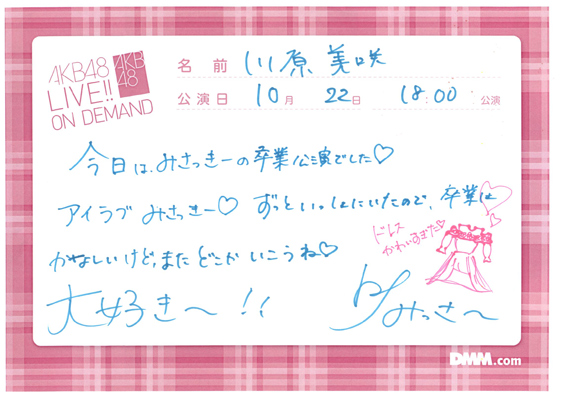 AKB48
LIVE!!
ON DEMAND
AKB
48
名前 川原美咲
公演日 10月 22日 18:00 公演
今日は、みさっきーの卒業公演でした♡
アイラブ みさっきー♡ ずっといっしょにいたので、卒業は
かなしいけど、またどこかいこうね♡
ドレス
かわいすぎた♡
大好き〜!!
By みっさ〜
DMM.com